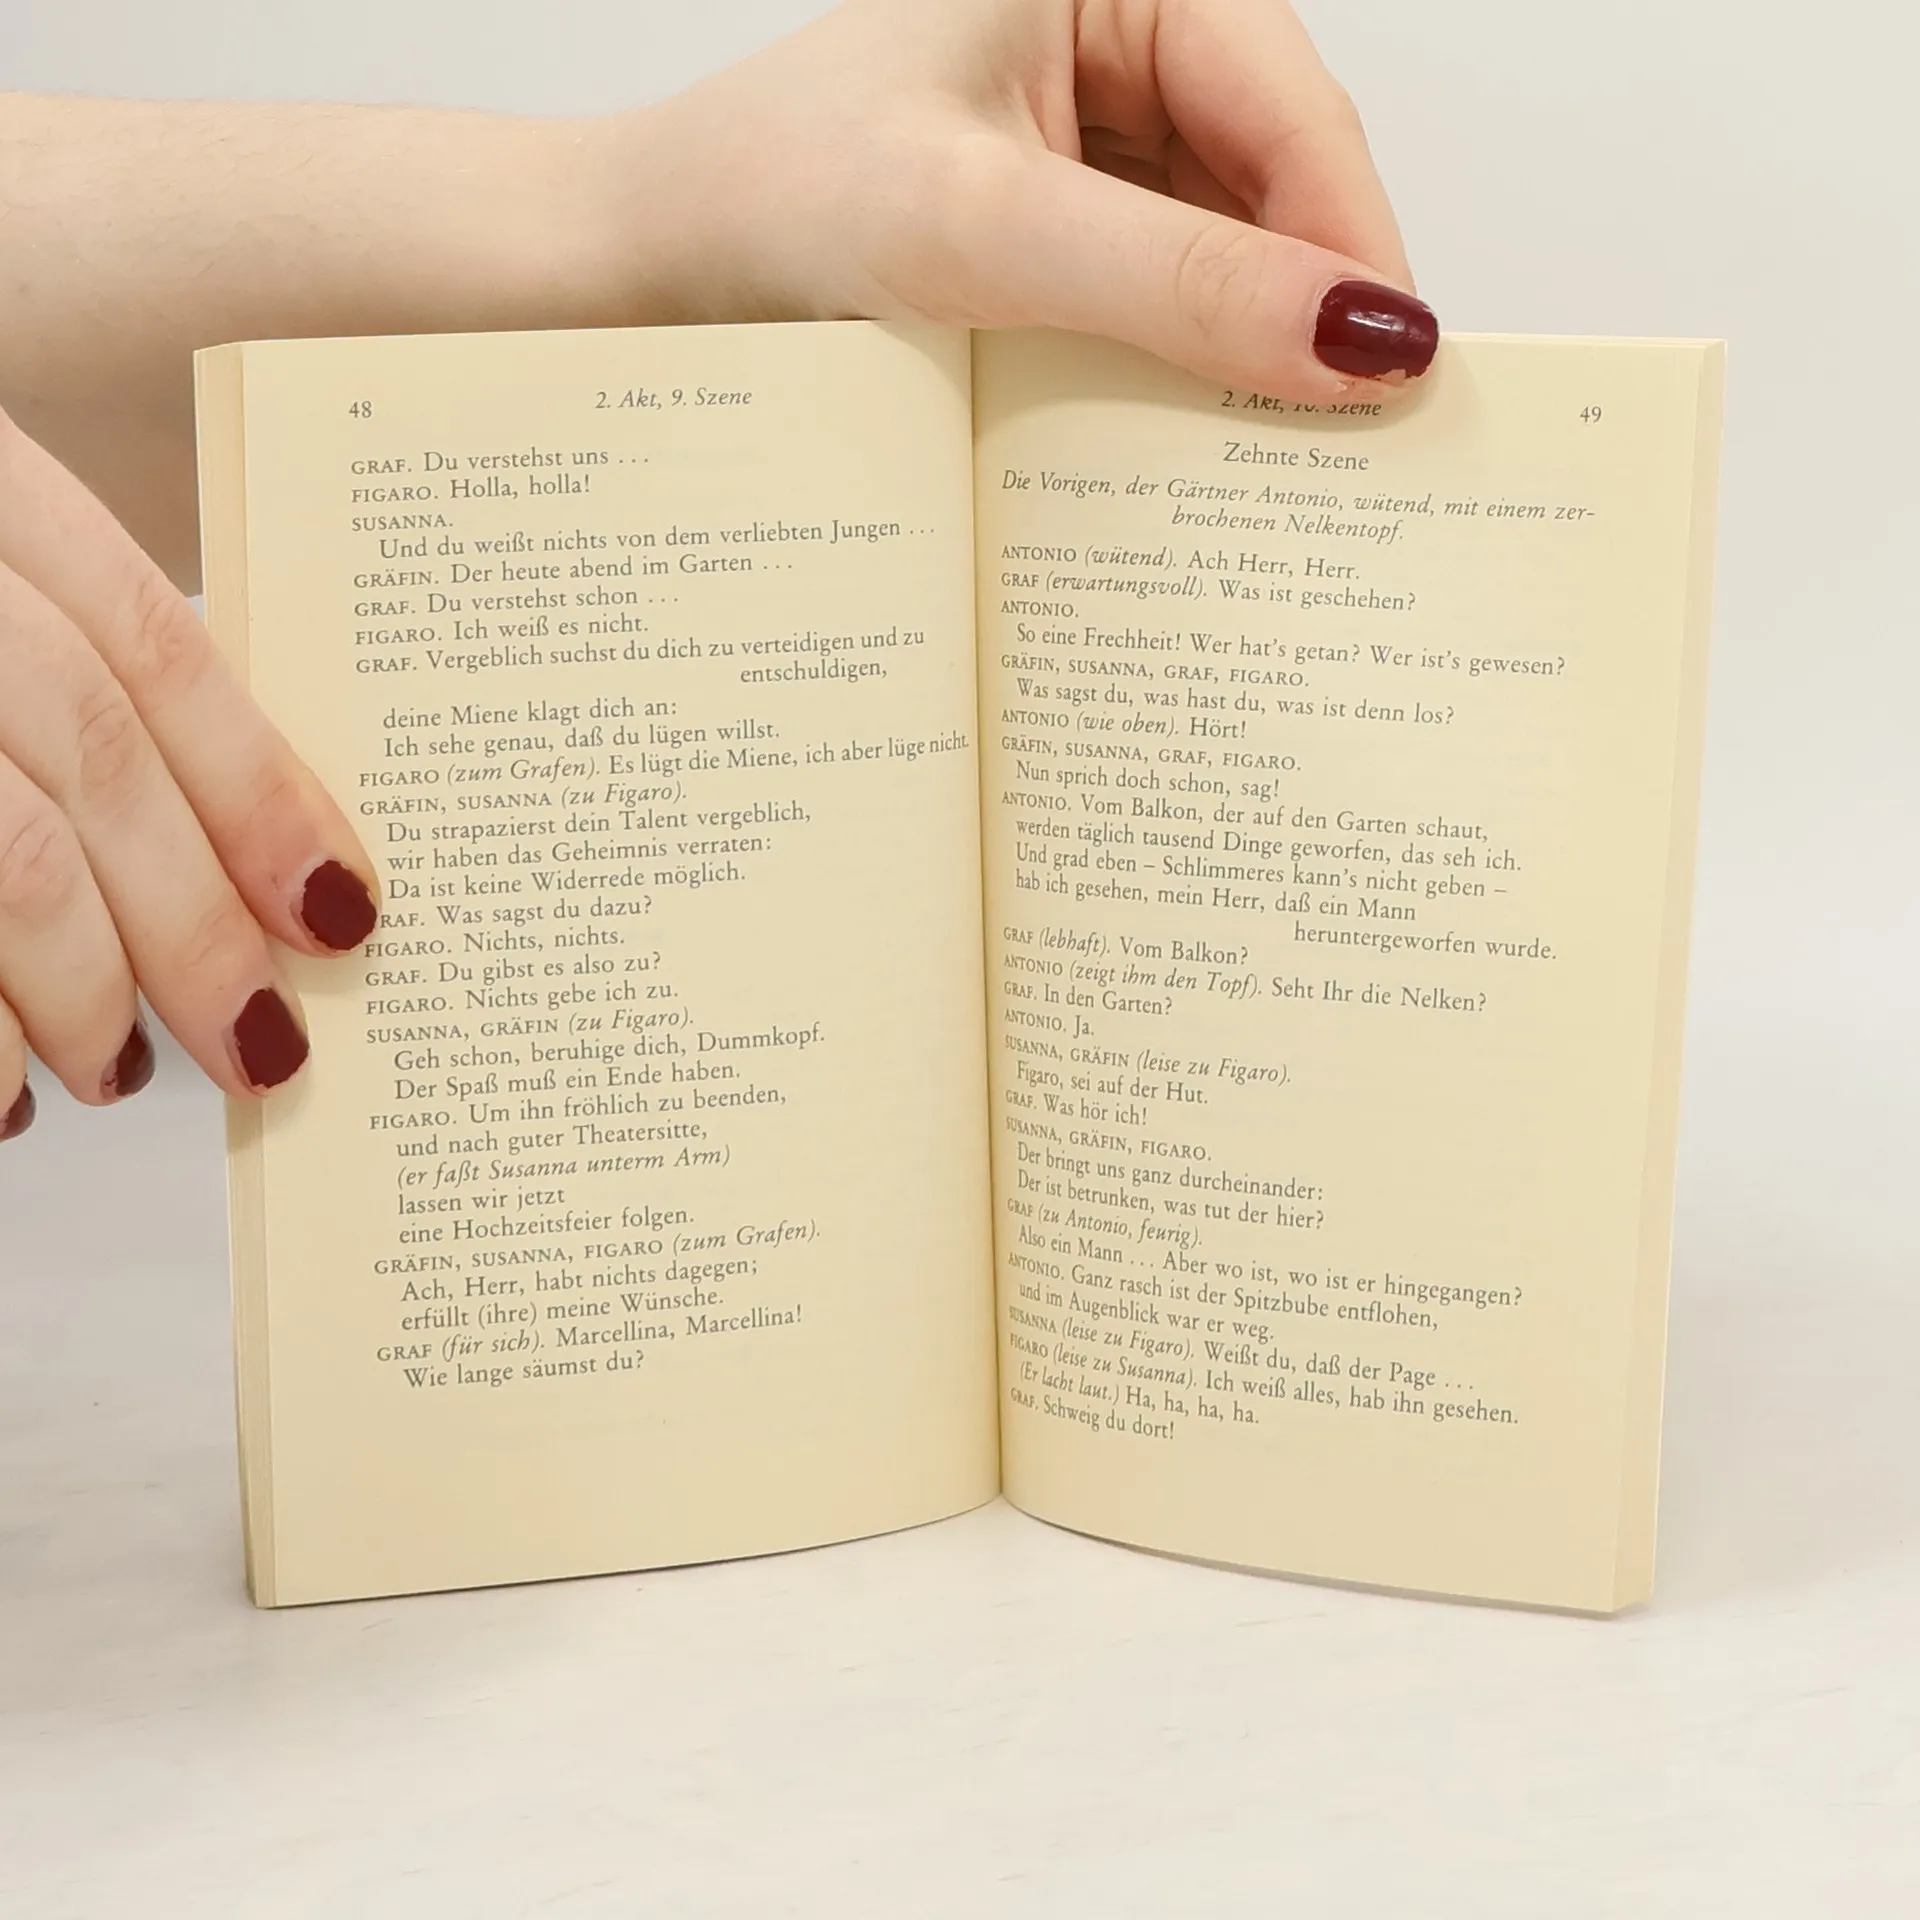 48
2. Akt, 9. Szene
GRAF. Du verstehst uns ...
FIGARO. Holla, holla!
SUSANNA.
Und du weißt nichts von dem verliebten Jungen ...
GRÄFIN. Der heute abend im Garten ...
GRAF. Du verstehst schon ...
FIGARO. Ich weiß es nicht.
GRAF. Vergeblich suchst du dich zu verteidigen und zu
entschuldigen,
deine Miene klagt dich an:
Ich sehe genau, daß du lügen willst.
FIGARO (zum Grafen). Es lügt die Miene, ich aber lüge nicht.
GRÄFIN, SUSANNA (zu Figaro).
Du strapazierst dein Talent vergeblich,
wir haben das Geheimnis verraten:
Da ist keine Widerrede möglich.
RAF. Was sagst du dazu?
FIGARO. Nichts, nichts.
GRAF. Du gibst es also zu?
FIGARO. Nichts gebe ich zu.
SUSANNA, GRÄFIN (zu Figaro).
Geh schon, beruhige dich, Dummkopf.
Der Spaß muß ein Ende haben.
FIGARO. Um ihn fröhlich zu beenden,
und nach guter Theatersitte,
(er faßt Susanna unterm Arm)
lassen wir jetzt
eine Hochzeitsfeier folgen.
GRÄFIN, SUSANNA, FIGARO (zum Grafen).
Ach, Herr, habt nichts dagegen;
erfüllt (ihre) meine Wünsche.
GRAF (für sich). Marcellina, Marcellina!
Wie lange säumst du?
2. Akt, 10. Szene
49
Zehnte Szene
Die Vorigen, der Gärtner Antonio, wütend, mit einem zer-
brochenen Nelkentopf.
ANTONIO (wütend). Ach Herr, Herr.
GRAF (erwartungsvoll). Was ist geschehen?
ANTONIO.
So eine Frechheit! Wer hat's getan? Wer ist's gewesen?
GRÄFIN, SUSANNA, GRAF, FIGARO.
Was sagst du, was hast du, was ist denn los?
ANTONIO (wie oben). Hört!
GRÄFIN, SUSANNA, GRAF, FIGARO.
Nun sprich doch schon, sag!
ANTONIO. Vom Balkon, der auf den Garten schaut,
werden täglich tausend Dinge geworfen, das seh ich.
Und grad eben – Schlimmeres kann's nicht geben –
hab ich gesehen, mein Herr, daß ein Mann
heruntergeworfen wurde.
GRAF (lebhaft). Vom Balkon?
ANTONIO (zeigt ihm den Topf). Seht Ihr die Nelken?
GRAF. In den Garten?
ANTONIO. Ja.
SUSANNA, GRÄFIN (leise zu Figaro).
Figaro, sei auf der Hut.
GRAF. Was hör ich!
SUSANNA, GRÄFIN, FIGARO.
Der bringt uns ganz durcheinander:
Der ist betrunken, was tut der hier?
GRAF (zu Antonio, feurig).
Also ein Mann ... Aber wo ist, wo ist er hingegangen?
ANTONIO. Ganz rasch ist der Spitzbube entflohen,
und im Augenblick war er weg.
SUSANNA (leise zu Figaro). Weißt du, daß der Page ...
FIGARO (leise zu Susanna). Ich weiß alles, hab ihn gesehen.
(Er lacht laut.) Ha, ha, ha, ha.
GRAF. Schweig du dort!